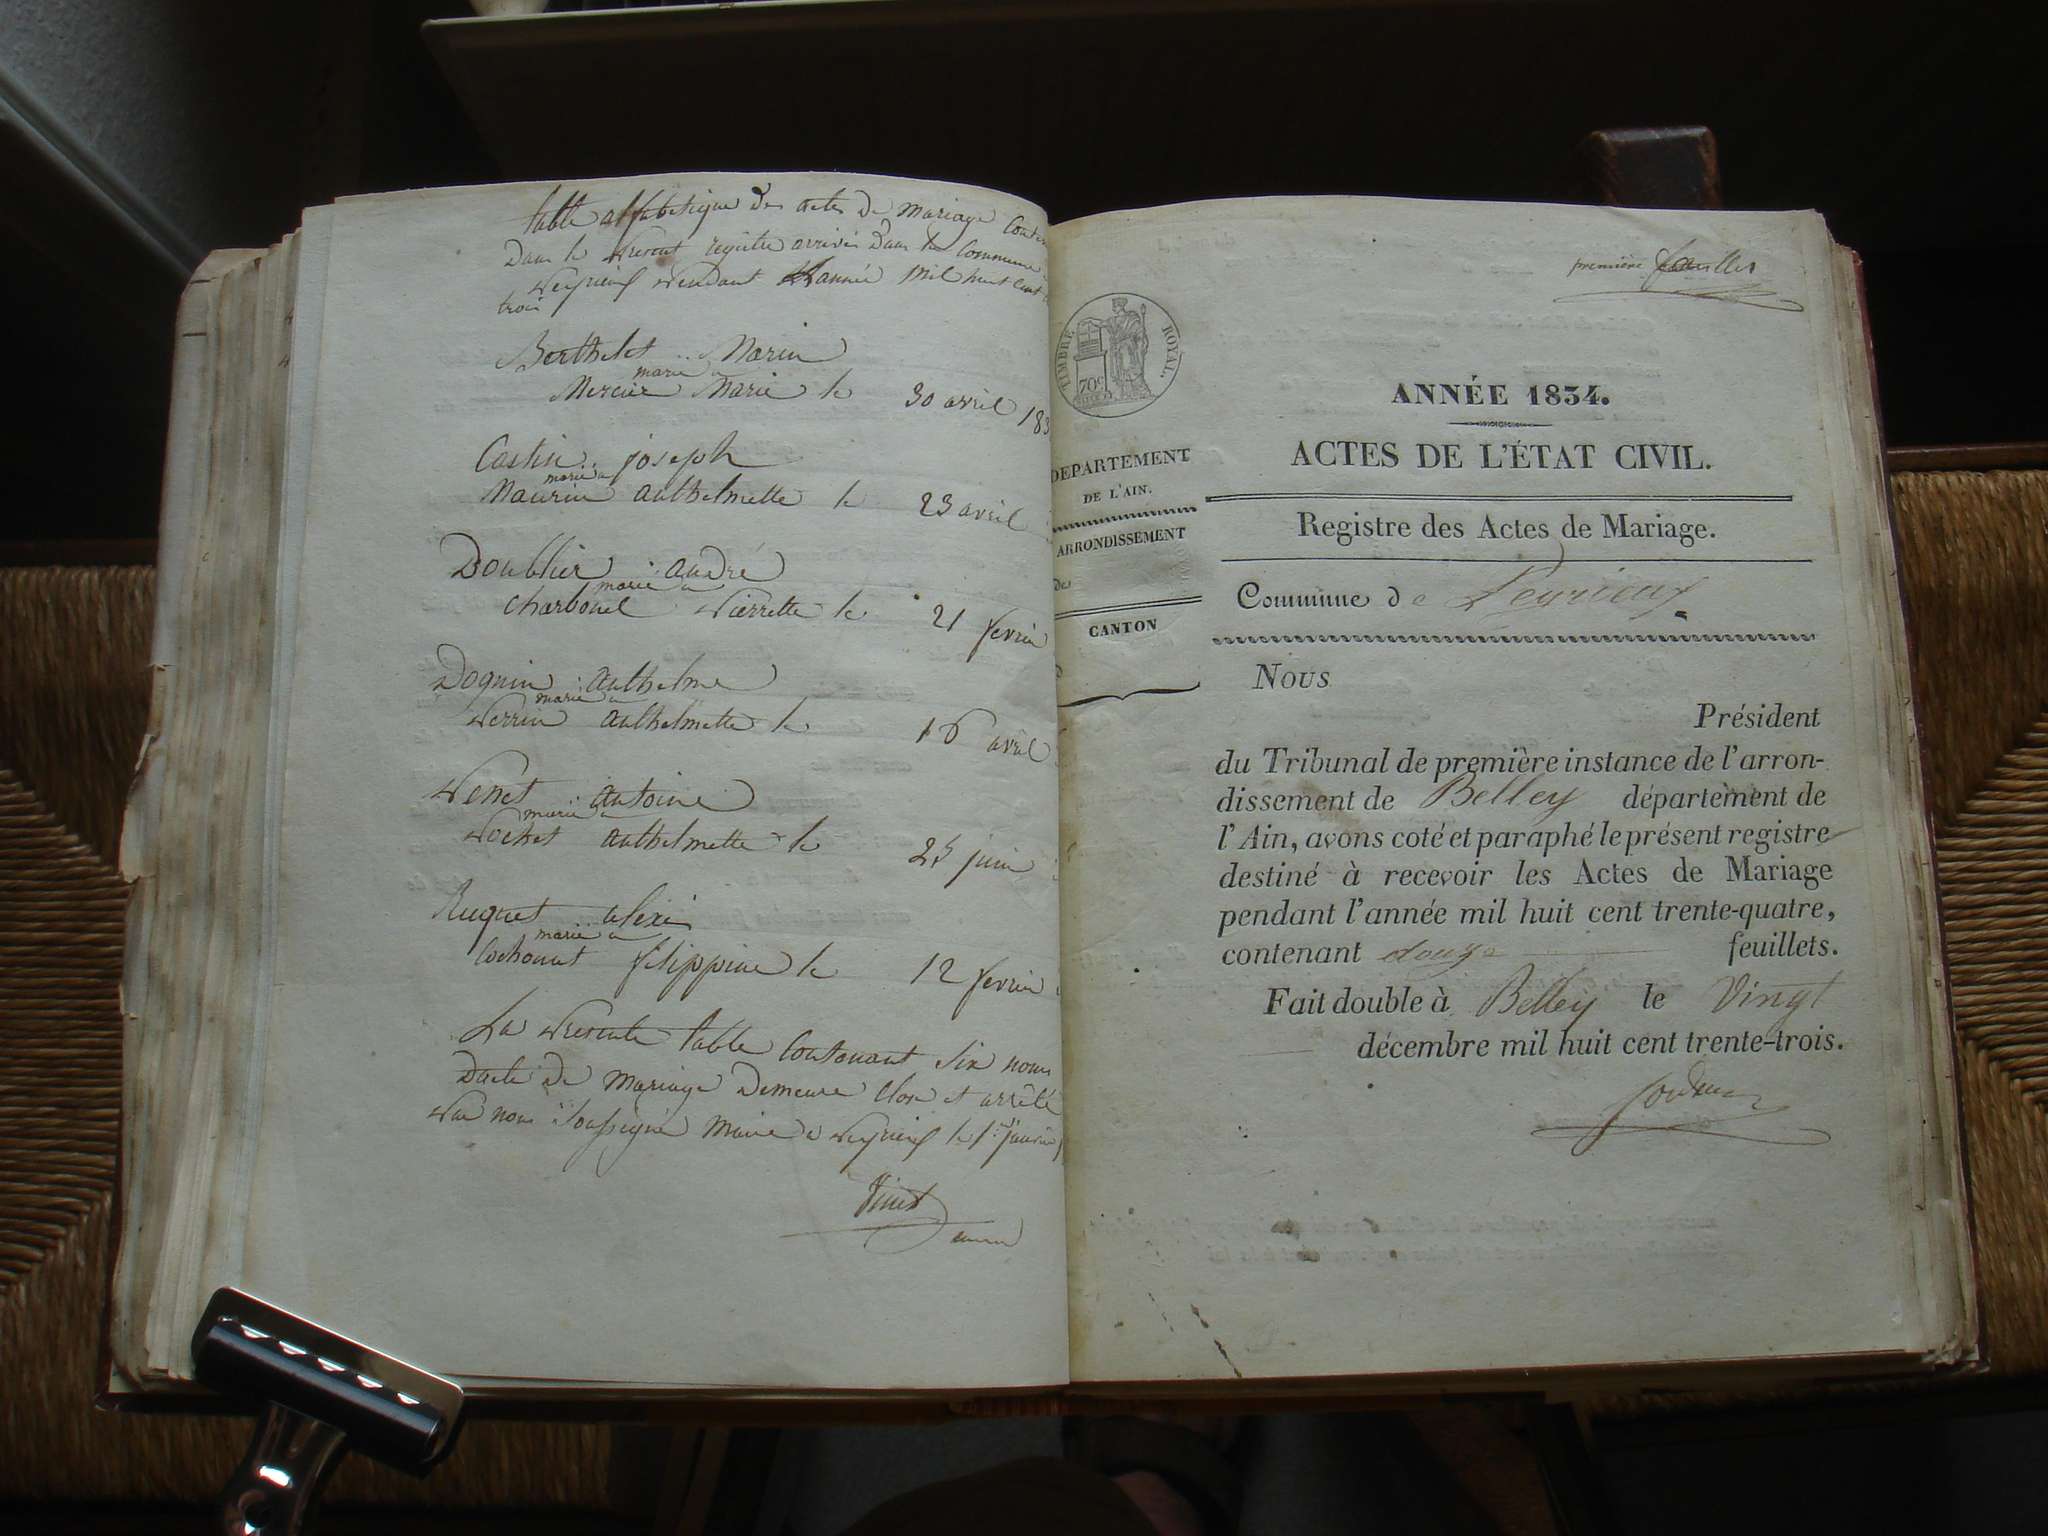 table alfabetique des actes de mariage
Dans le present registre arrivés Dans la Commune
Peyrieux pendant l'année mil huit cent
trois
Berthelet Marin
marié a
Mercier Marie le 30 avril 183
Castin joseph
marié a
Maurin anthelmette le 23 avril
Doublier andré
marié a
Charbonel Pierrette le 21 fevrie
Dognin anthelme
marié a
Perrin anthelmette le 16 avril
Penet antoine
marié a
Pochet anthelmette le 25 juin
Ruquet alexi
marié a
Cochonat filippine le 12 fevrie
La presente table Contenant six noms
Dacte De mariage Demeure Close et arrêté
Par nous soussigné Maire a Peyrieux le 1er janvie
première feuillet
TIMBRE ROYAL
70c
DEPARTEMENT
DE L'AIN.
ARRONDISSEMENT
de
CANTON
d
ANNÉE 1834.
ACTES DE L'ÉTAT CIVIL.
Registre des Actes de Mariage.
Commune de Peyrieux
NOUS
Président
du Tribunal de première instance de l'arron-
dissement de Belley département de
l'Ain, avons coté et paraphé le présent registre
destiné à recevoir les Actes de Mariage
pendant l'année mil huit cent trente-quatre,
contenant douze feuillets.
Fait double à Belley le Vingt
décembre mil huit cent trente-trois.